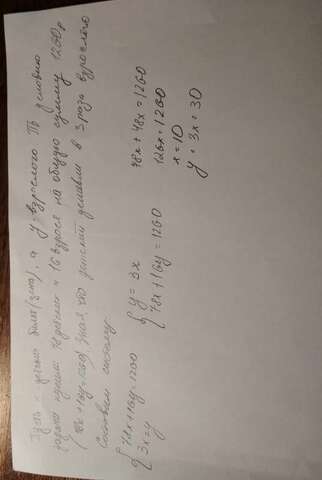 Пусть x - детский билет (цена), а y - взрослого. По условию
задачи купили 78 детских и 16 взросл на общую сумму 1260р
(78x+16y=1260), зная, что детский дешевле в 3 раза взрослого
Составим систему:
{78x+16y=1260
3x=y
{y=3x
78x+16y=1260
78x+48x=1260
126x=1260
x=10
y=3x=30